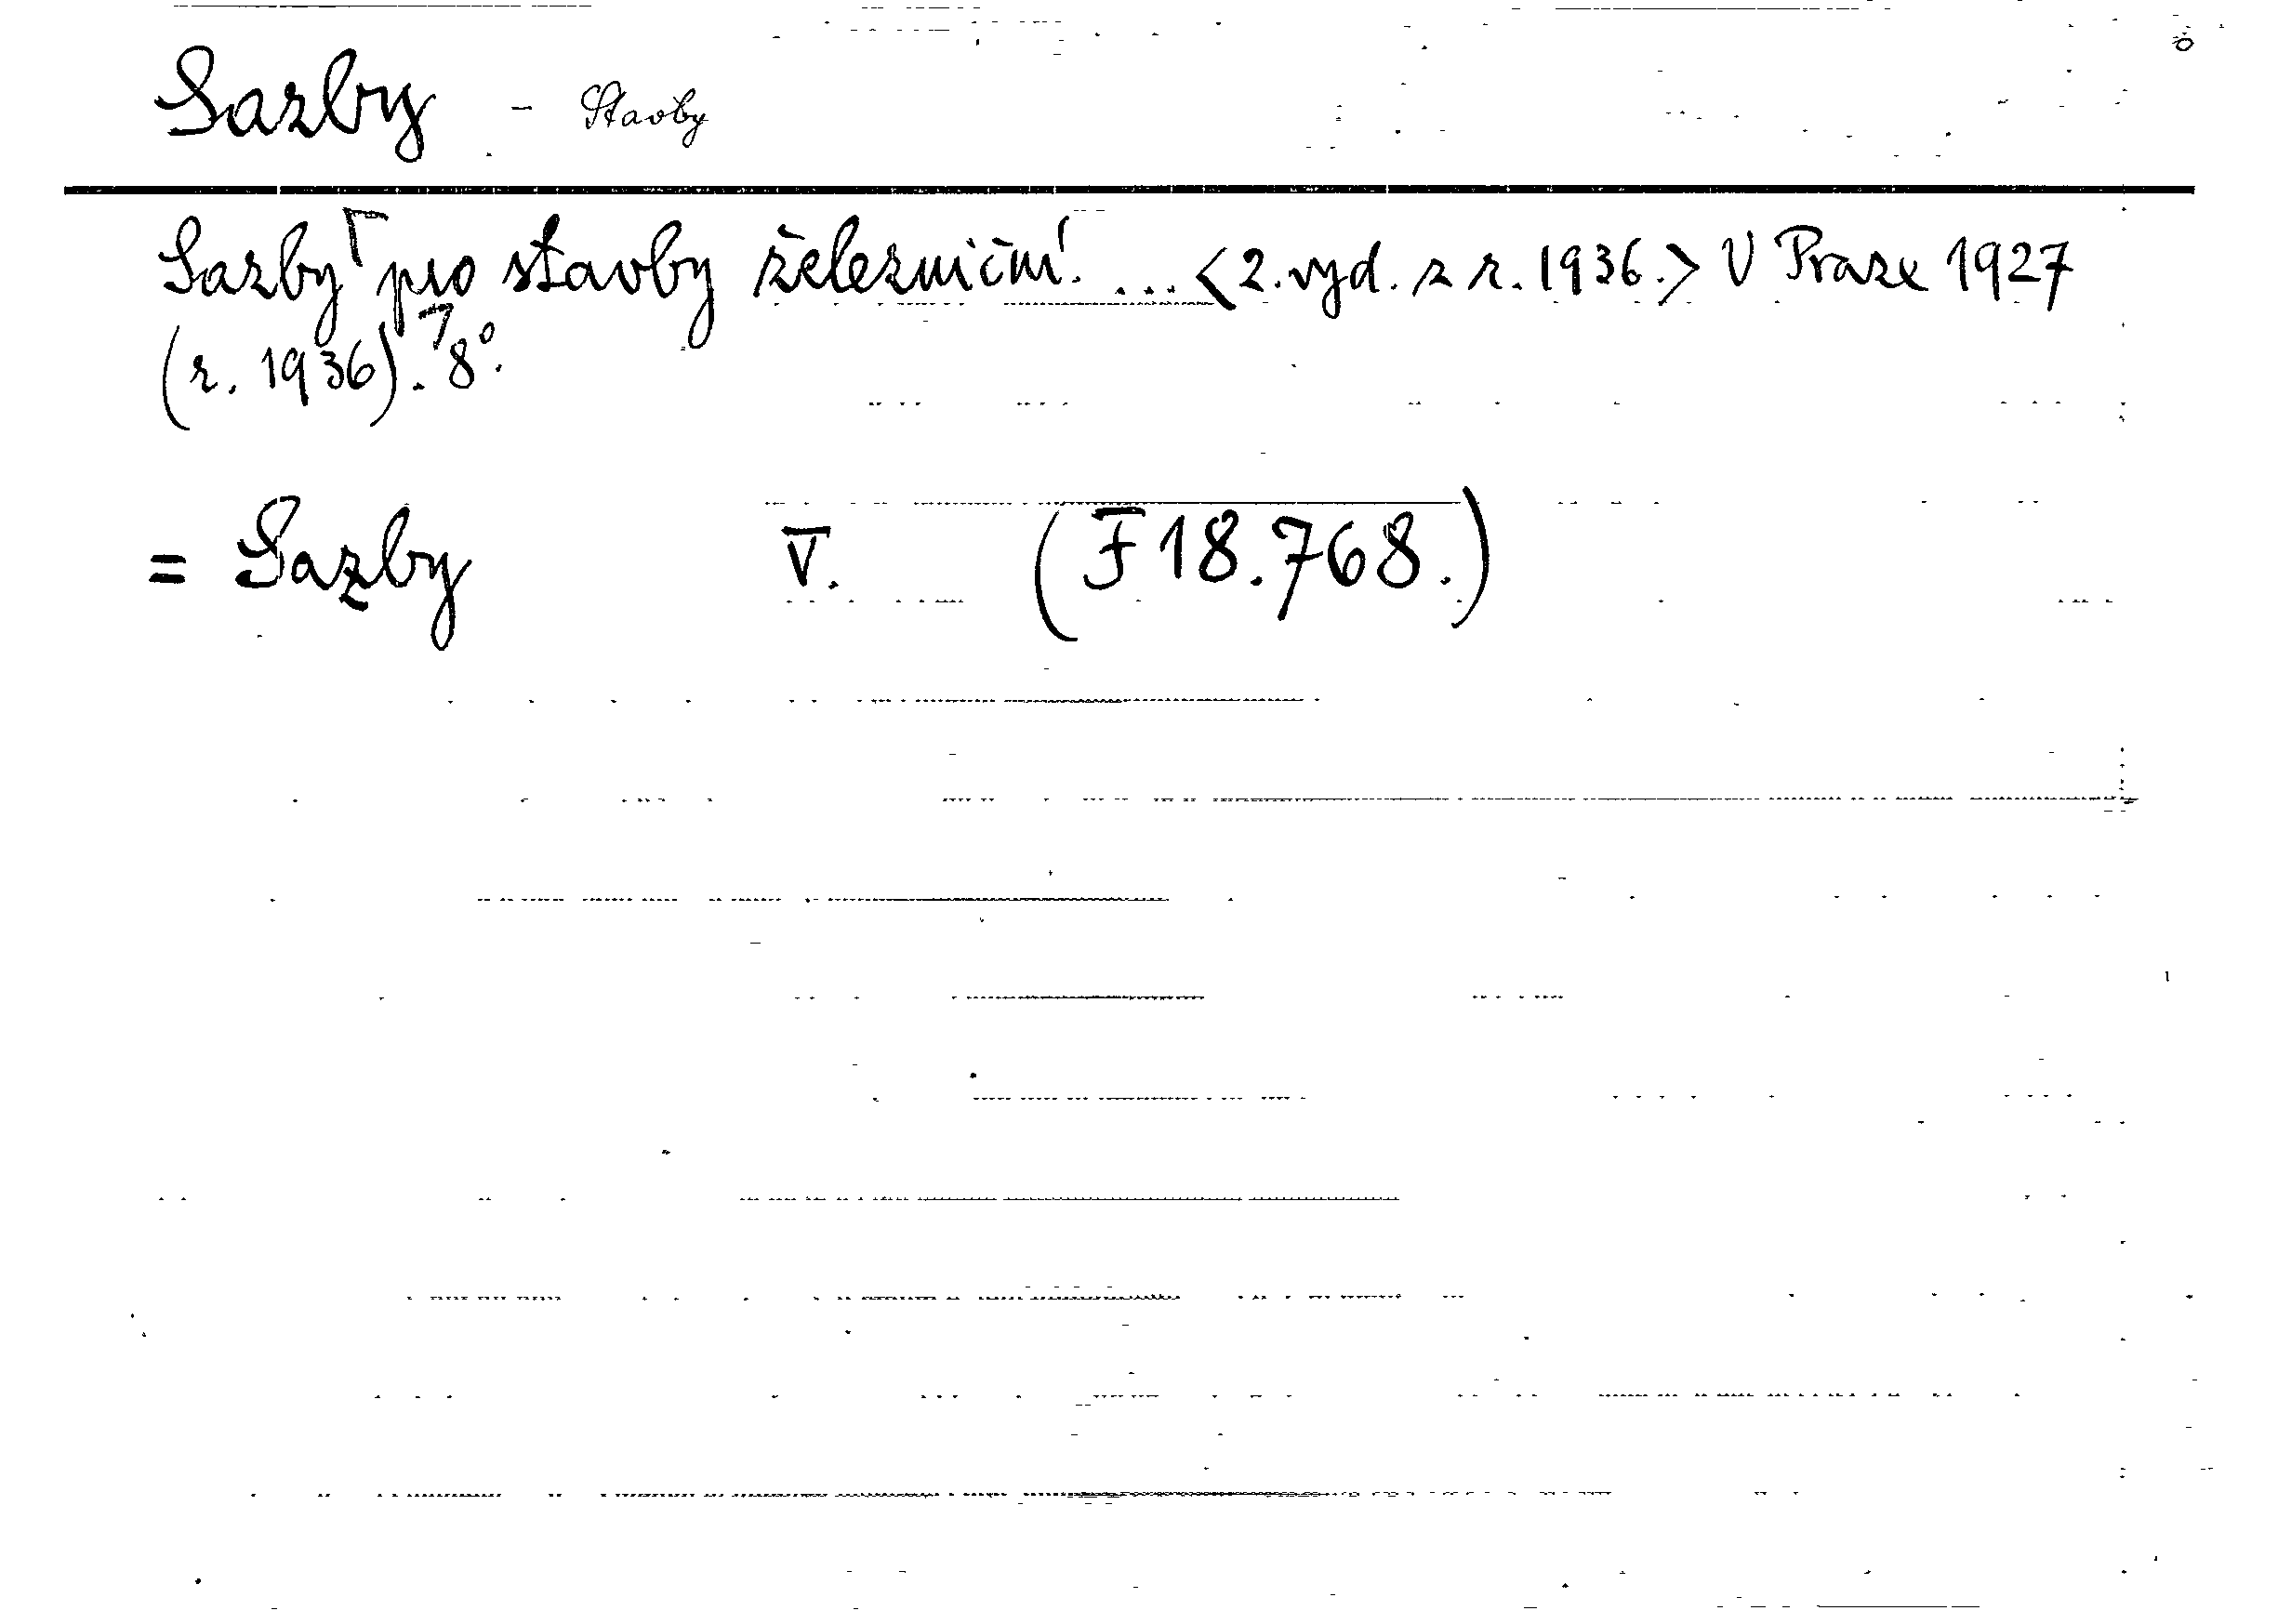 Sazby - Stavby
Sazby pro stavby železniční. ... <2. vyd. z r. 1936.> V Praze 1927
(r. 1936). 8°.
= Sazby V. (F 18.768.)